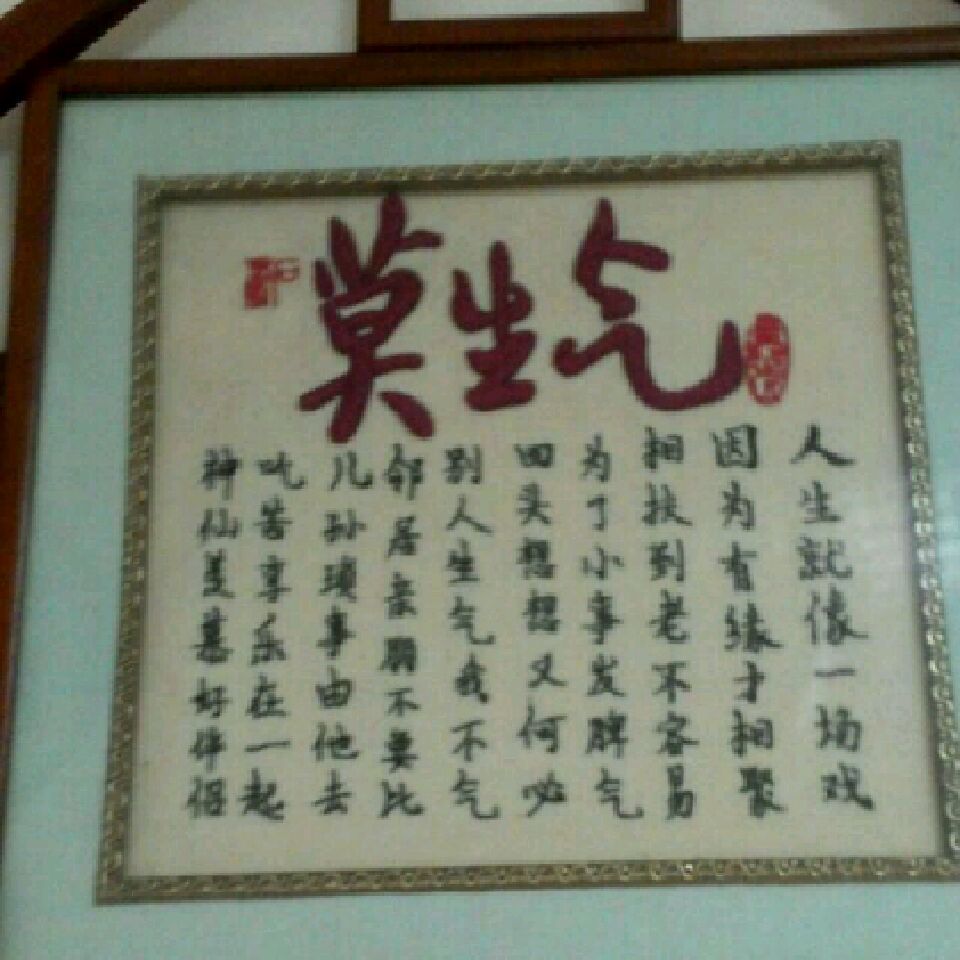 莫生气
人生就像一场戏
因为有缘才相聚
相扶到老不容易
为了小事发脾气
回头想想又何必
别人生气我不气
邻居亲朋不要比
儿孙琐事由他去
吃苦享乐在一起
神仙羡慕好伴侣